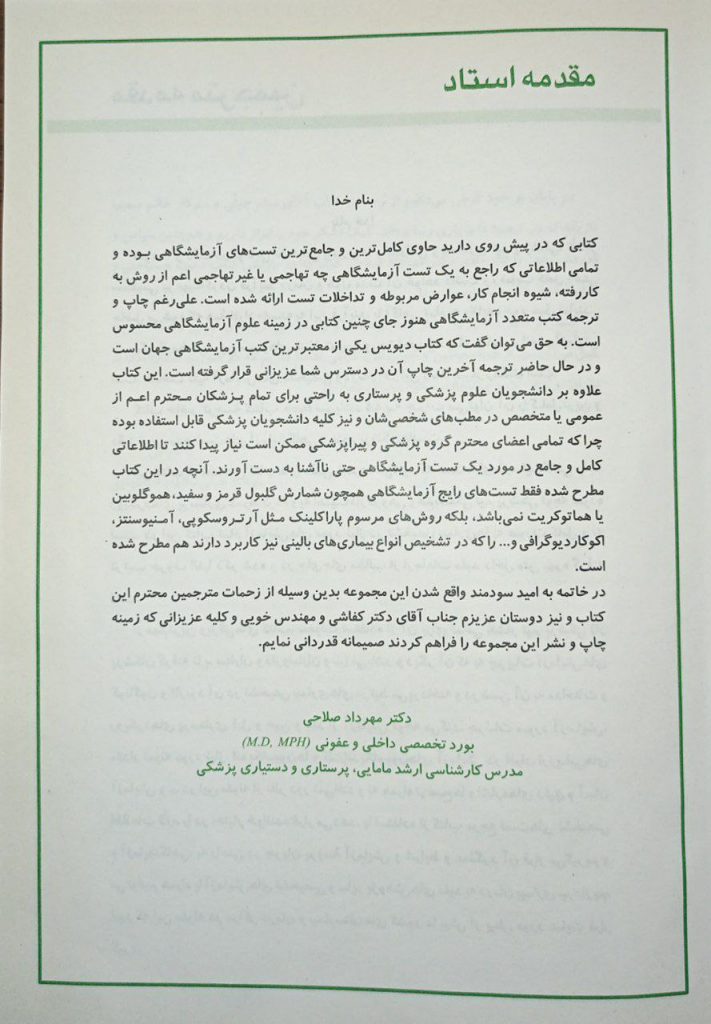 مقدمه استاد
بنام خدا
کتابی که در پیش روی دارید حاوی کامل‌ترین و جامع‌ترین تست‌های آزمایشگاهی بوده و
تمامی اطلاعاتی که راجع به یک تست آزمایشگاهی چه تهاجمی یا غیرتهاجمی اعم از روش به
کاررفته، شیوه انجام کار، عوارض مربوطه و تداخلات تست ارائه شده است. علی‌رغم چاپ و
ترجمه کتب متعدد آزمایشگاهی هنوز جای چنین کتابی در زمینه علوم آزمایشگاهی محسوس
است. به حق می‌توان گفت که کتاب دیویس یکی از معتبرترین کتب آزمایشگاهی جهان است
و در حال حاضر ترجمه آخرین چاپ آن در دسترس شما عزیزانی قرار گرفته است. این کتاب
علاوه بر دانشجویان علوم پزشکی و پرستاری به راحتی برای تمام پزشکان محترم اعم از
عمومی یا متخصص در مطب‌های شخصی‌شان و نیز کلیه دانشجویان پزشکی قابل استفاده بوده
چرا که تمامی اعضای محترم گروه پزشکی و پیراپزشکی ممکن است نیاز پیدا کنند تا اطلاعاتی
کامل و جامع در مورد یک تست آزمایشگاهی حتی ناآشنا به دست آورند. آنچه در این کتاب
مطرح شده فقط تست‌های رایج آزمایشگاهی همچون شمارش گلبول قرمز و سفید، هموگلوبین
یا هماتوکریت نمی‌باشد، بلکه روش‌های مرسوم پاراکلینک مثل آرتروسکوپی، آمنیوسنتز،
اکوکاردیوگرافی و... را که در تشخیص انواع بیماری‌های بالینی نیز کاربرد دارند هم مطرح شده
است.
در خاتمه به امید سودمند واقع شدن این مجموعه بدین وسیله از زحمات مترجمین محترم این
کتاب و نیز دوستان عزیزم جناب آقای دکتر کفاشی و مهندس خویی و کلیه عزیزانی که زمینه
چاپ و نشر این مجموعه را فراهم کردند صمیمانه قدردانی نمایم.
دکتر مهرداد صلاحی
بورد تخصصی داخلی و عفونی (M.D, MPH)
مدرس کارشناسی ارشد مامایی، پرستاری و دستیاری پزشکی